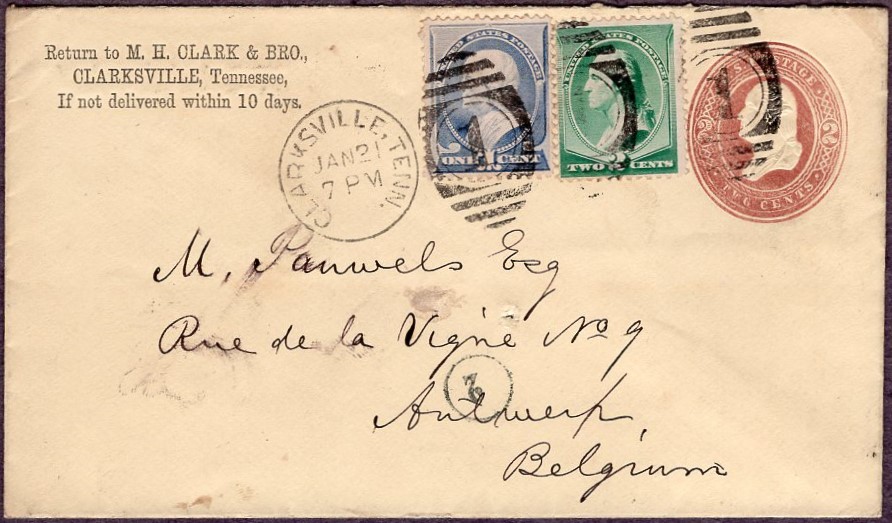 Return to M. H. CLARK & BRO.,
CLARKSVILLE, Tennessee,
If not delivered within 10 days.
CLARKSVILLE, TENN.
JAN 21
7 PM
UNITED STATES POSTAGE
ONE CENT
UNITED STATES POSTAGE
TWO 2 CENTS
U.S. POSTAGE
TWO CENTS
1
1
M. Pauwels Esq
Rue de la Vigne No. 9
Antwerp
Belgium